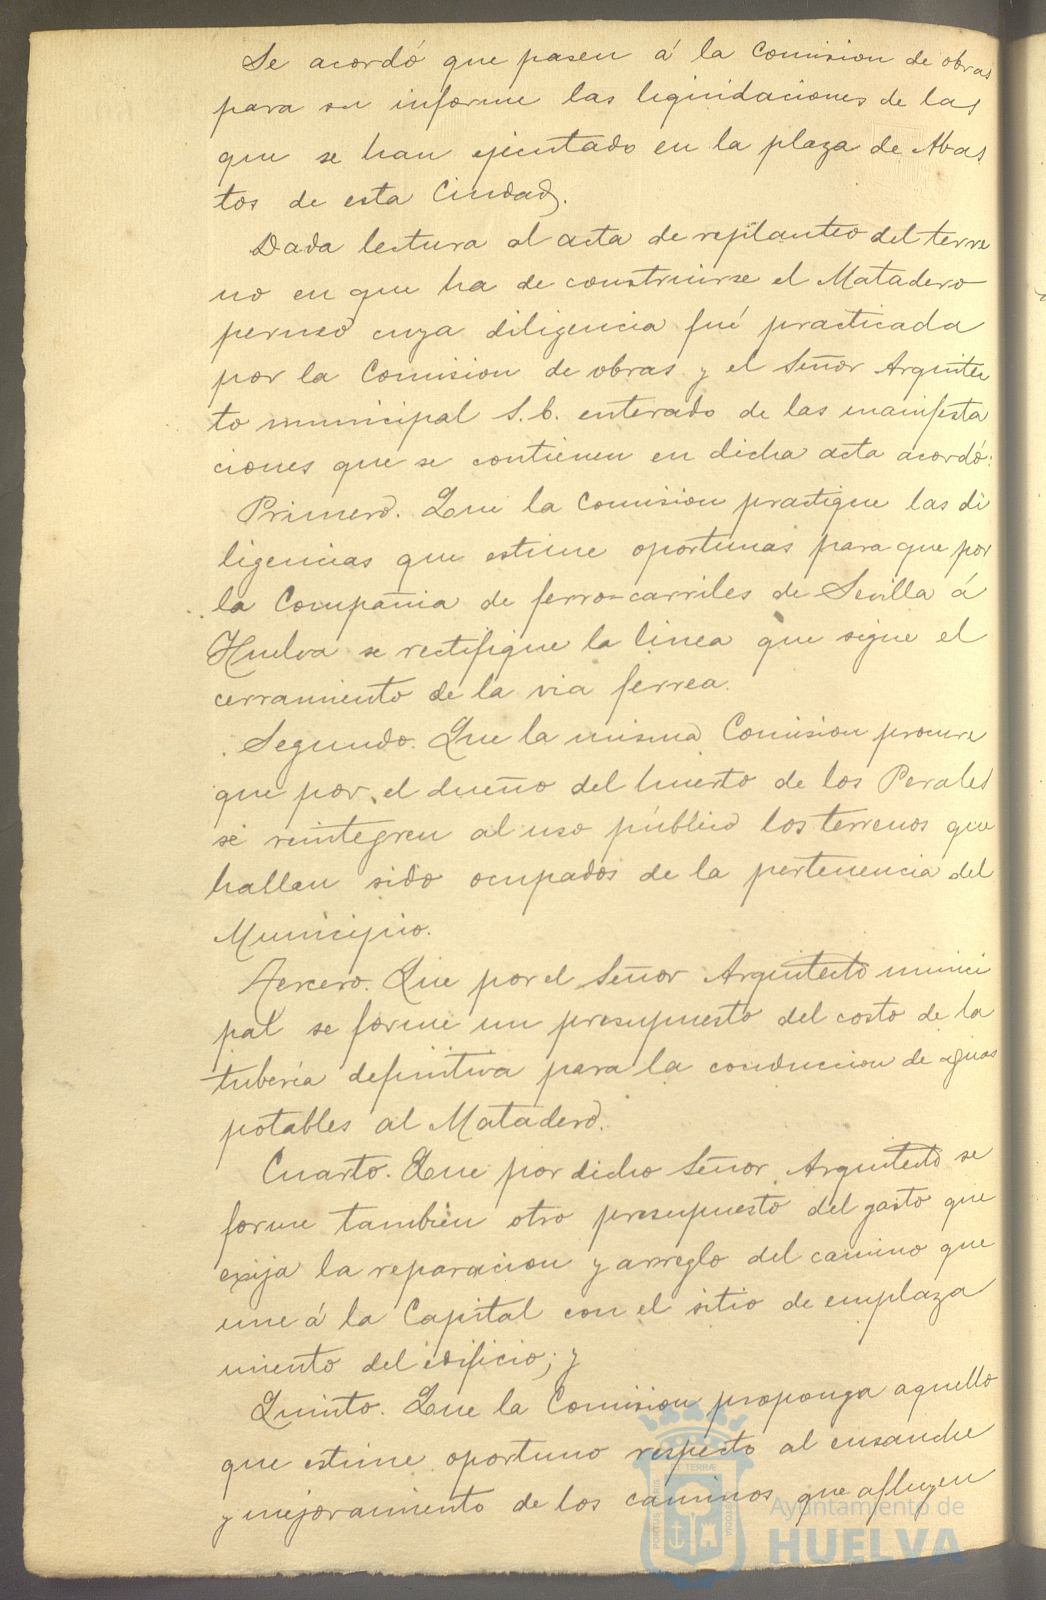 Se acordó que pasen á la Comision de obras
para su informe las liquidaciones de las
que se han ejecutado en la plaza de Abas
tos de esta Ciudad.
Dada lectura al acta de replanteo del terre
no en que ha de construirse el Matadero
perneo cuya diligencia fué practicada
por la Comision de obras y el Señor Arquitec
to municipal S.E. enterado de las manifesta
ciones que se contienen en dicha acta acordó:
Primero. Que la Comision practique las di
ligencias que estime oportunas para que por
la Compañia de ferro=carriles de Sevilla á
Huelva se rectifique la linea que sigue el
cerramiento de la via ferrea.
Segundo. Que la misma Comision procure
que por el dueño del huerto de los Perales
se reintegren al uso público los terrenos que
hallan sido ocupados de la pertenencia del
Municipio.
Tercero. Que por el Señor Arquitecto munici
pal se forme un presupuesto del costo de la
tubería definitiva para la conduccion de aguas
potables al Matadero.
Cuarto. Que por dicho Señor Arquitecto se
forme tambien otro presupuesto del gasto que
exija la reparacion y arreglo del camino que
une á la Capital con el sitio de emplaza
miento del edificio; y
Quinto. Que la Comision proponga aquello
que estime oportuno respecto al ensanche
y mejoramiento de los caminos que afluyen
Ayuntamiento de
HUELVA